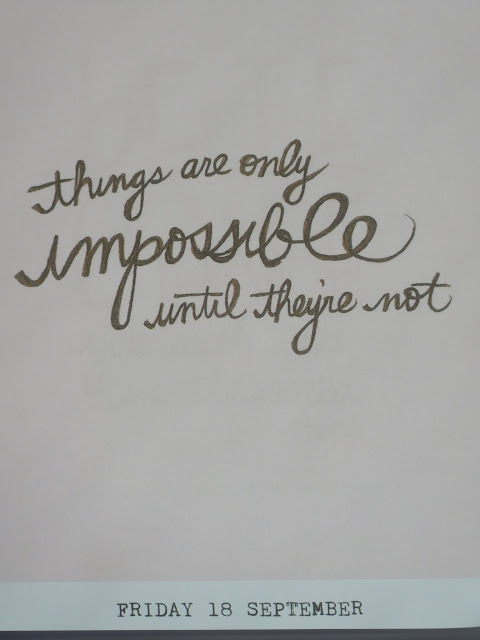 things are only
impossible
until they're not
FRIDAY 18 SEPTEMBER